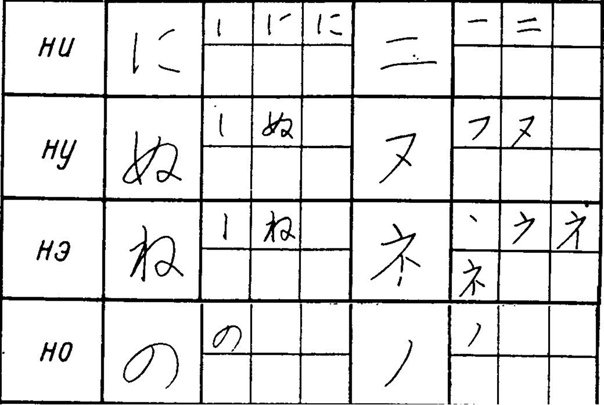 ни に に ニ 一 ニ
ну ぬ ぬ ヌ フ ヌ
нэ ね ね ネ 丶 ウ ネ
ネ
но の の ノ ノ